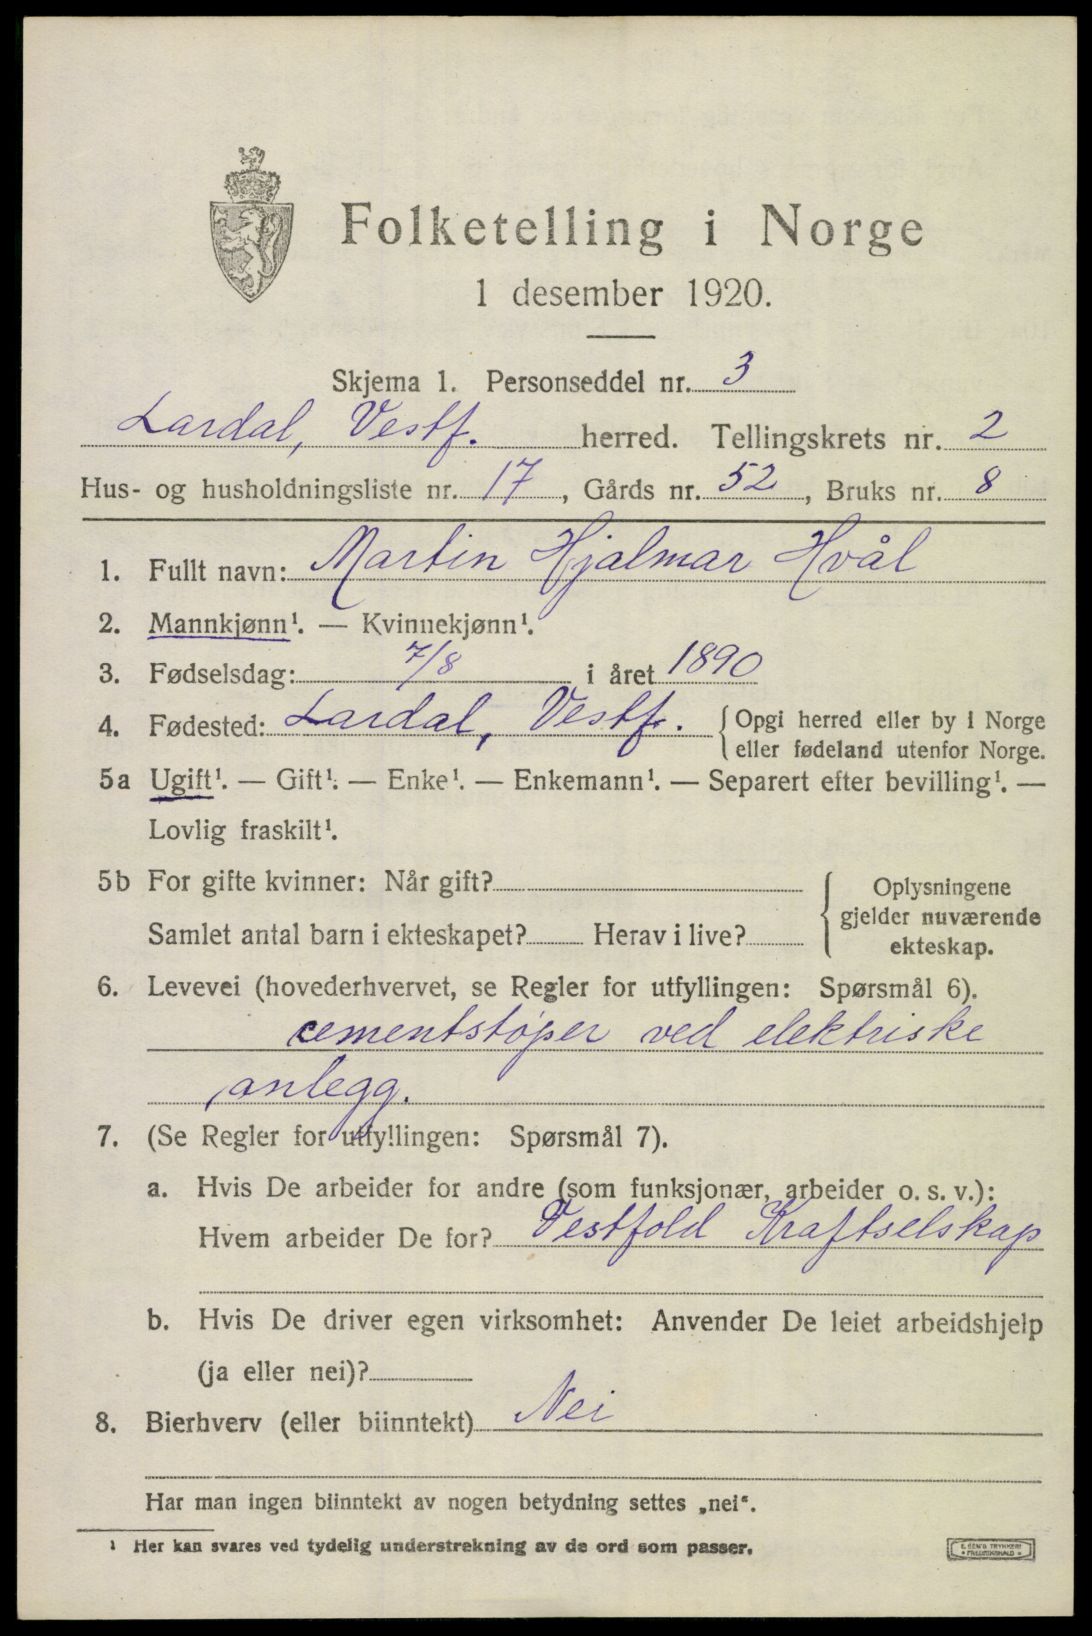 Folketelling i Norge
1 desember 1920.
Skjema 1. Personseddel nr. 3
Lardal, Vestf. herred. Tellingskrets nr. 2
Hus- og husholdningsliste nr. 17, Gårds nr. 52, Bruks nr. 8
1. Fullt navn: Martin Hjalmar Hvål
2. Mannkjønn¹. — Kvinnekjønn¹.
3. Fødselsdag: 7/8 i året 1890
4. Fødested: Lardal, Vestf. { Opgi herred eller by i Norge
eller fødeland utenfor Norge.
5a Ugift¹. — Gift¹. — Enke¹. — Enkemann¹. — Separert efter bevilling¹. —
Lovlig fraskilt¹.
5b For gifte kvinner: Når gift?
Samlet antal barn i ekteskapet? Herav i live?
{ Oplysningene
gjelder nuværende
ekteskap.
6. Levevei (hovederhvervet, se Regler for utfyllingen: Spørsmål 6).
cementstöper ved elektriske
anlegg.
7. (Se Regler for utfyllingen: Spørsmål 7).
a. Hvis De arbeider for andre (som funksjonær, arbeider o. s. v.):
Hvem arbeider De for? Vestfold Kraftselskap
b. Hvis De driver egen virksomhet: Anvender De leiet arbeidshjelp
(ja eller nei)?
8. Bierhverv (eller biinntekt) Nei
Har man ingen biinntekt av nogen betydning settes „nei“.
¹ Her kan svares ved tydelig understrekning av de ord som passer.
E. SEM'S TRYKKERI
• FREDRIKSHALD •